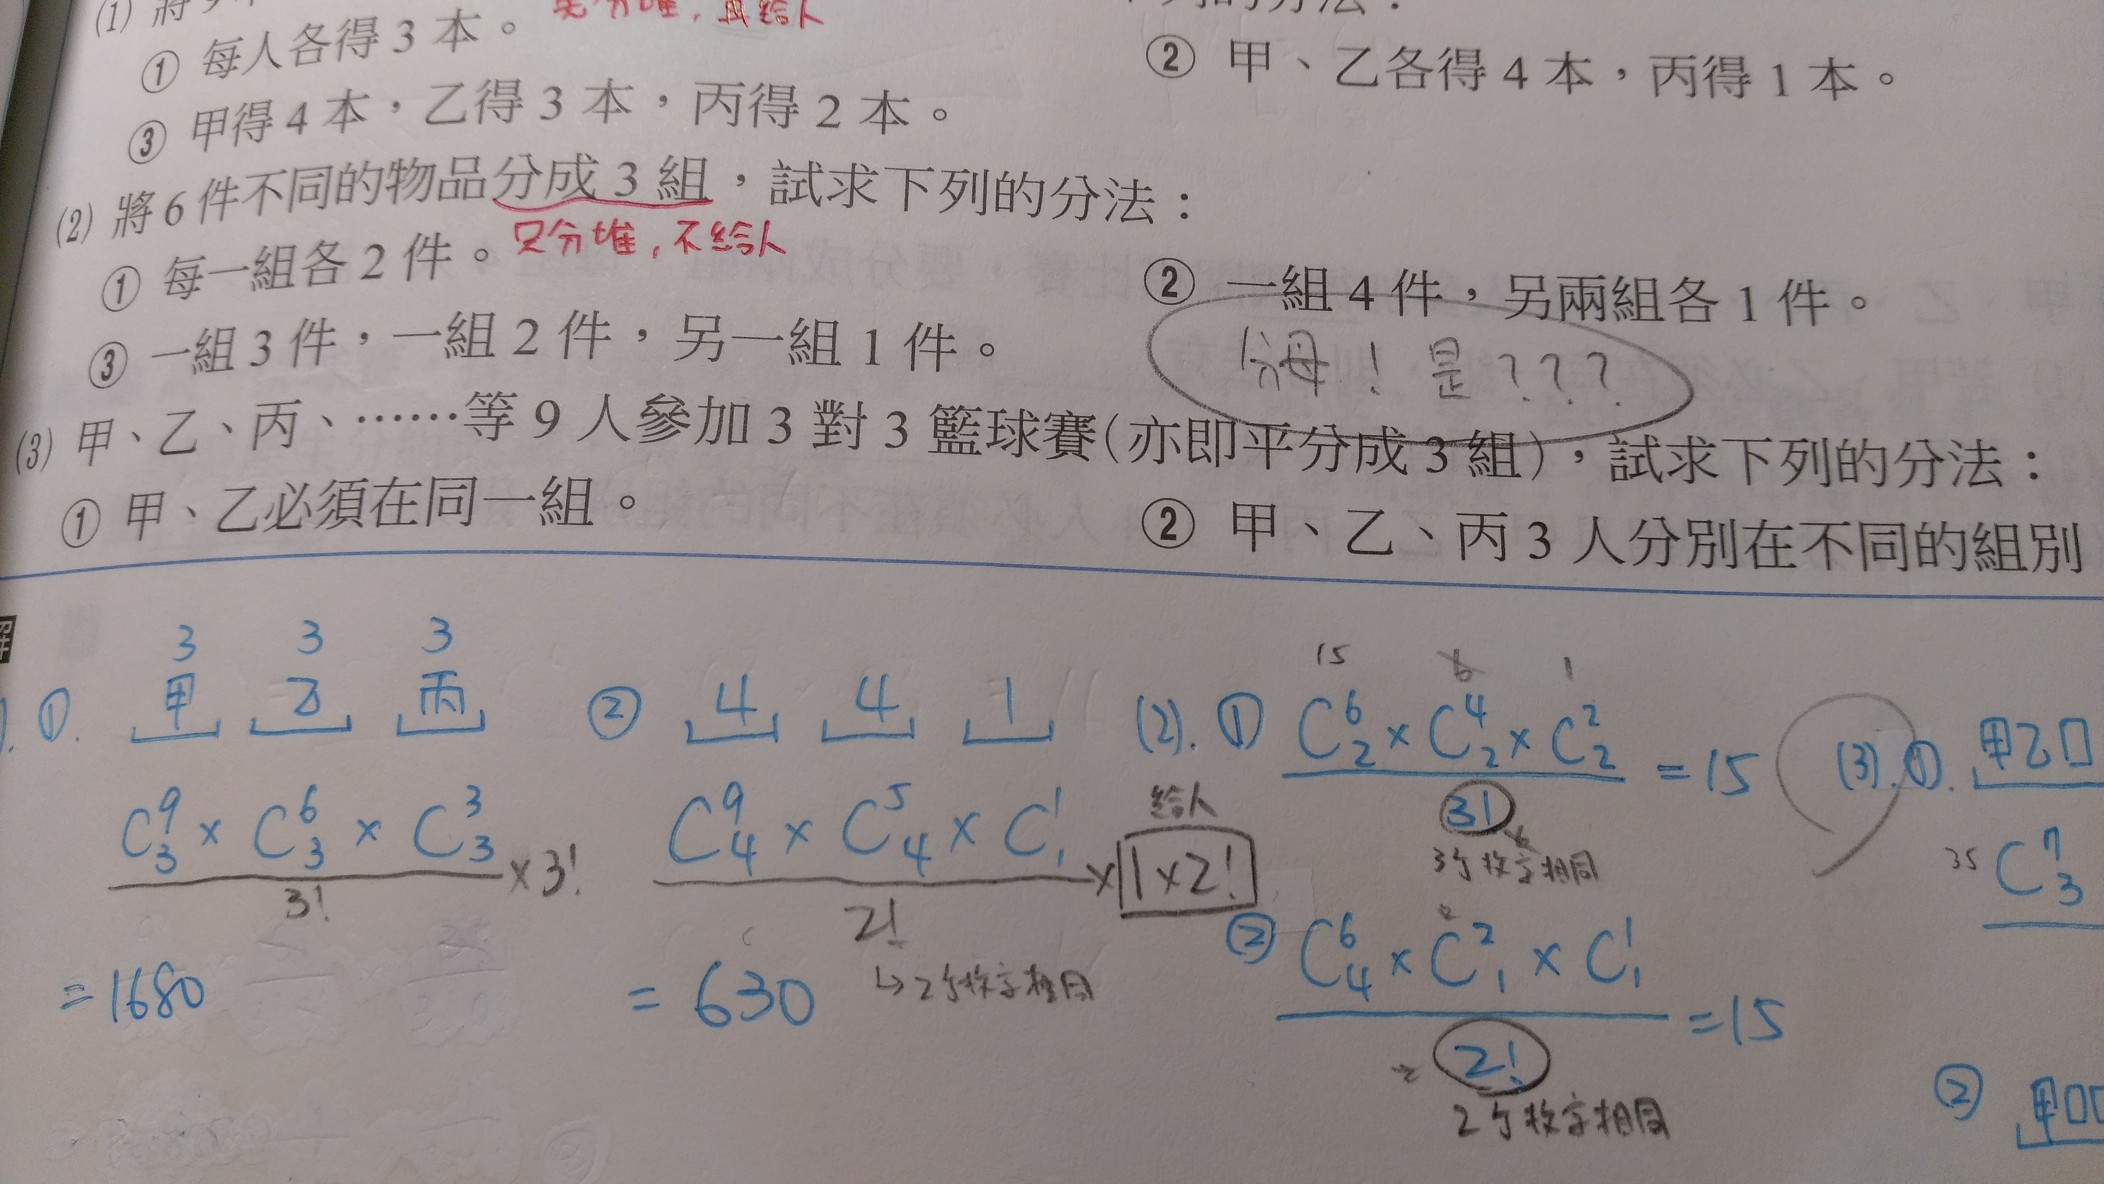 (1) 將9
先分堆，再給人
列的分法：
① 每人各得 3 本。
② 甲、乙各得 4 本，丙得 1 本。
③ 甲得 4 本，乙得 3 本，丙得 2 本。
(2) 將 6 件不同的物品分成 3 組，試求下列的分法：
只分堆，不給人
① 每一組各 2 件。
② 一組 4 件，另兩組各 1 件。
③ 一組 3 件，一組 2 件，另一組 1 件。
分母！是？？？
(3) 甲、乙、丙、……等 9 人參加 3 對 3 籃球賽(亦即平分成 3 組)，試求下列的分法：
① 甲、乙必須在同一組。
② 甲、乙、丙 3 人分別在不同的組別
解
① 3 3 3
甲 乙 丙
C⁹₃ × C⁶₃ × C³₃
3!
×3!
= 1680
② 4 4 1
C⁹₄ × C⁵₄ × C¹₁
2!
× 1×2!
給人
= 630
↳ 2个数字相同
(2). ① 15 6 1
C⁶₂ × C⁴₂ × C²₂
3!
= 15
3个数字相同
② C⁶₄ × C²₁ × C¹₁
2!
= 15
2个数字相同
(3). ①. 甲乙□
35 C⁷₃
② 甲□□